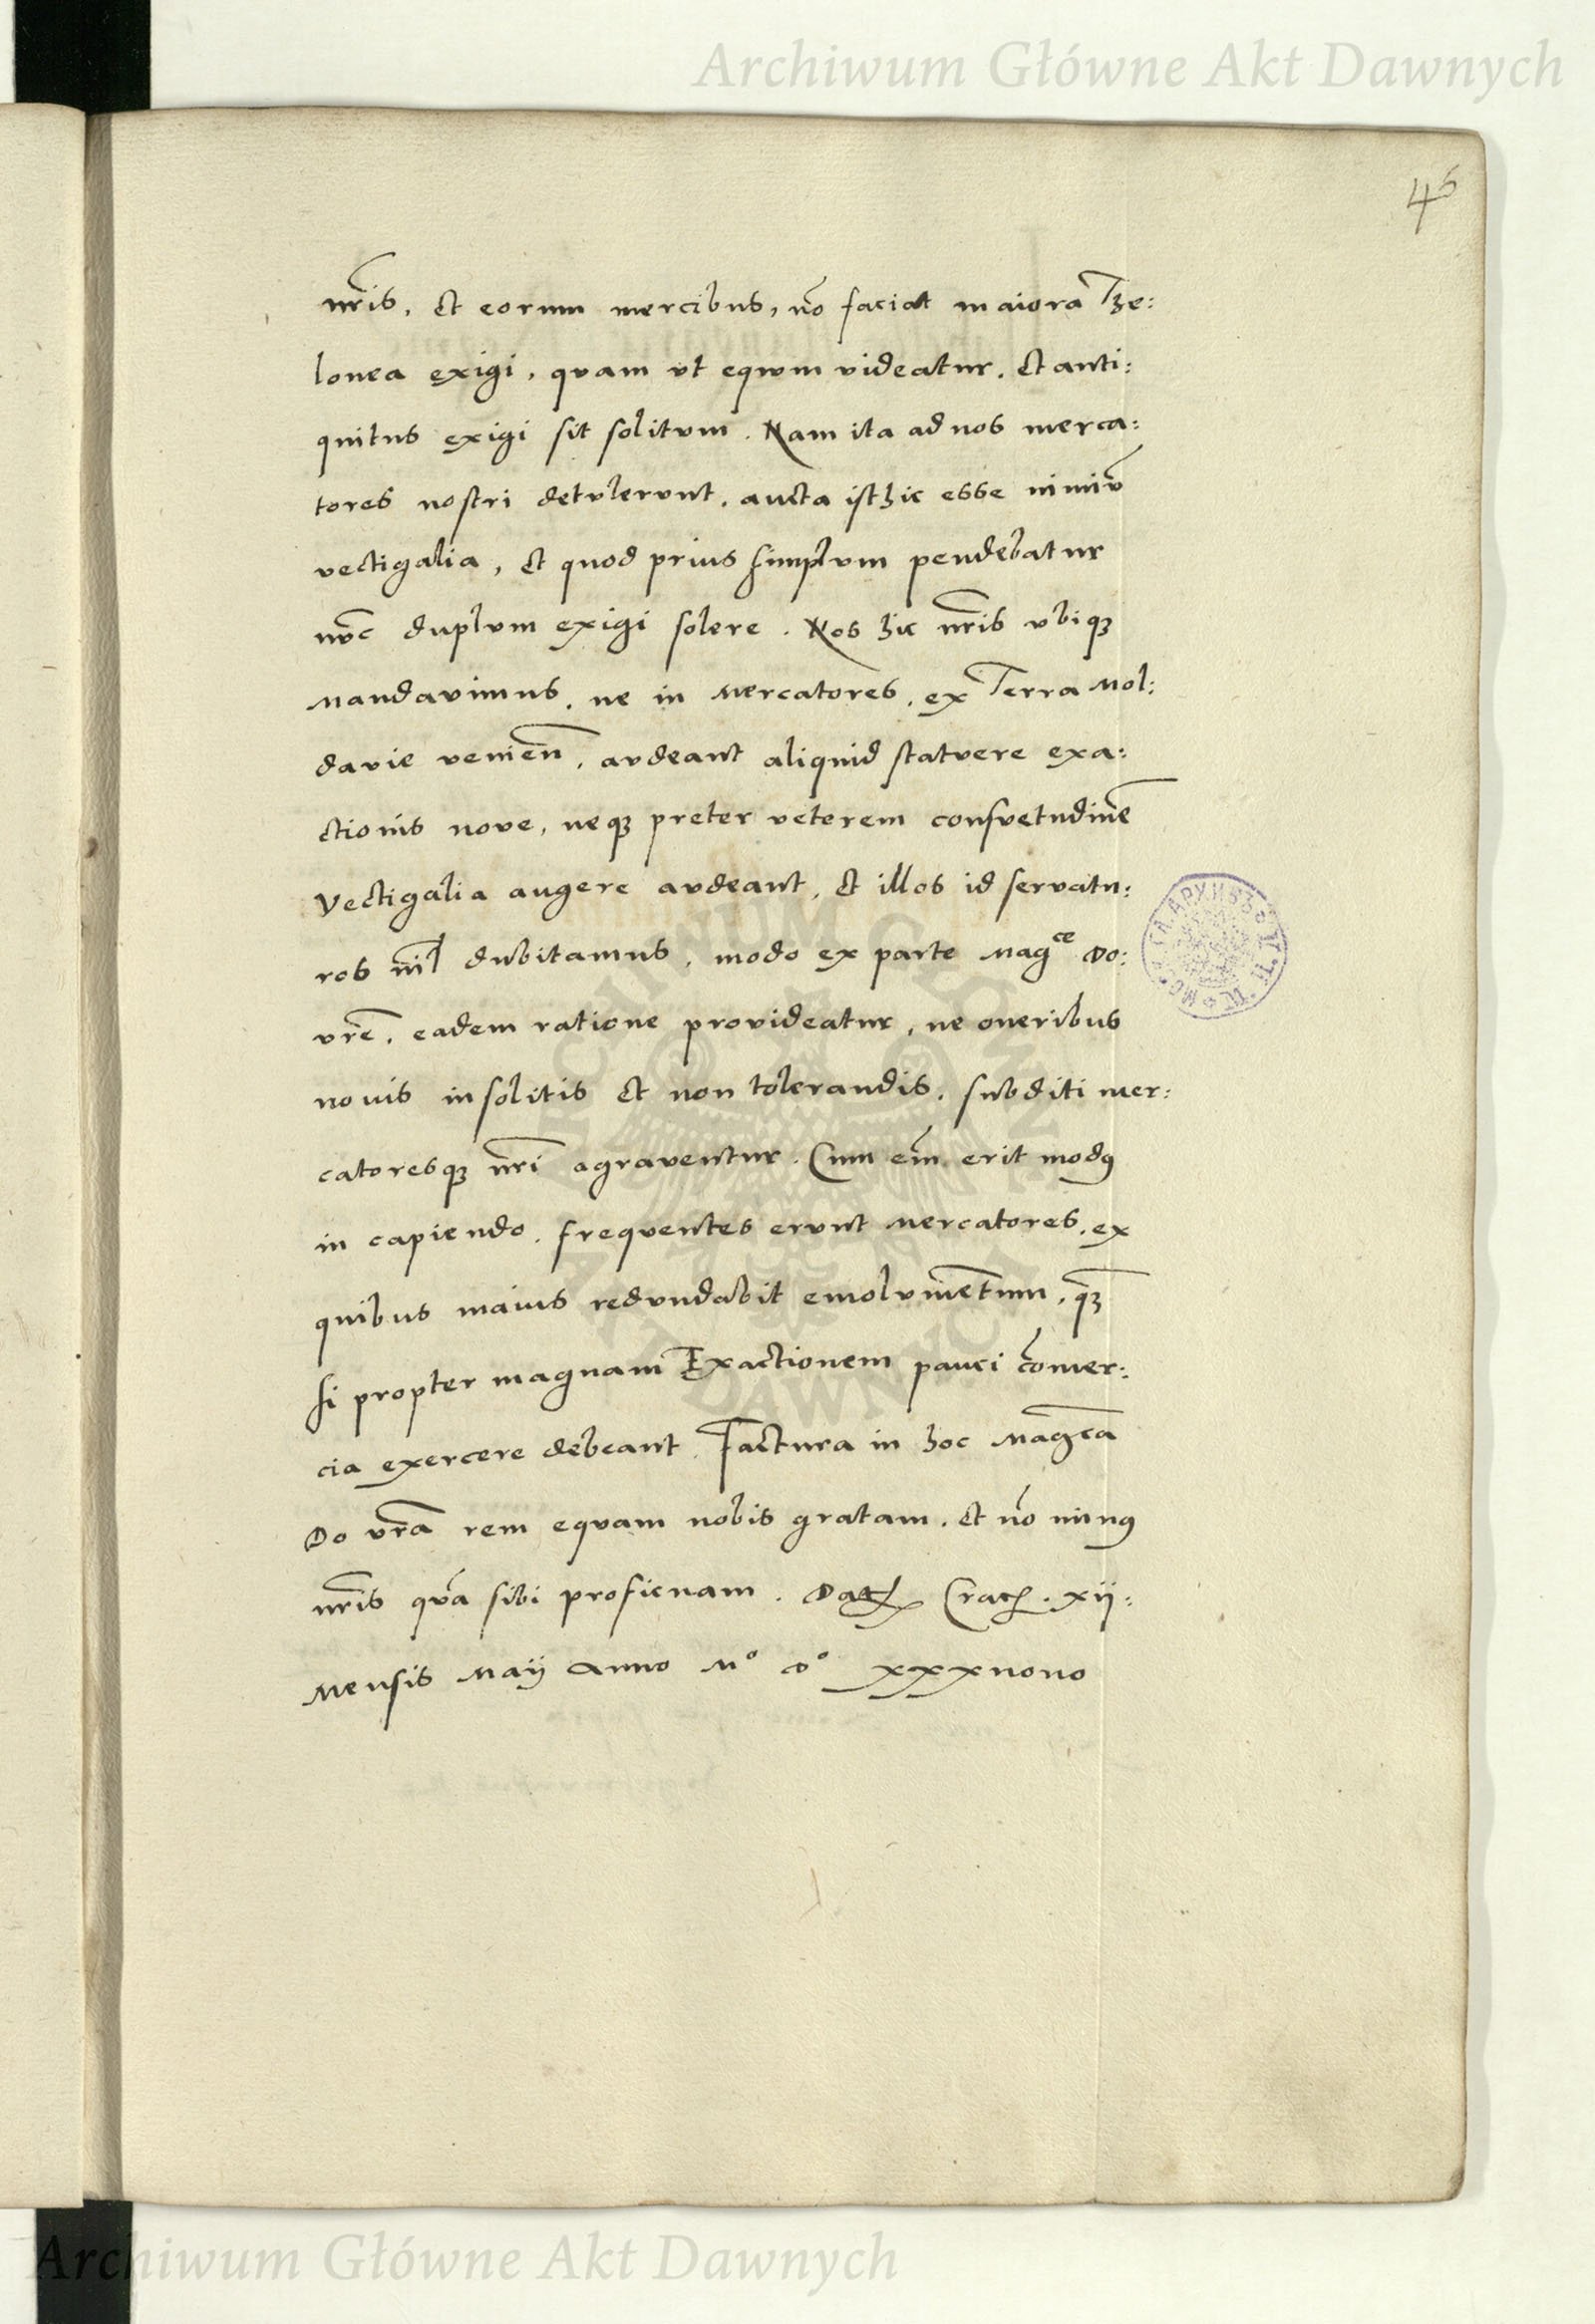 Archiwum Główne Akt Dawnych
45
nr̃is, et eorum mercibus, nõ faciat maiora The:
lonea exigi, quam vt equum videatur. Et anti:
quitus exigi sit solitum. Nam ita ad nos merca:
tores nostri detulerunt, aucta isthic esse nimiũ
vectigalia, et quod prius simplum pendebatur
nũc duplum exigi solere. Nos hic nr̃is vbiqȝ
Mandavimus, ne in Mercatores, ex Terra Mol:
davie venieñ, audeant aliquid statuere exa:
ctionis nove, neqȝ preter veterem consuetudinẽ
Vectigalia augere audeant, et illos id servatu:
ros nil̃ dubitamus, modo ex parte Mag^ce Do:
vr̃e, eadem ratione provideatur, ne oneribus
novis insolitis et non tolerandis, subditi mer:
catoresqȝ nr̃i agraventur. Cum em̃ erit modꝰ
in capiendo, frequentes erunt Mercatores, ex
quibus maius redundabit emolumẽtum, qȝ̃
si propter magnam Exactionem pauci cõmer:
cia exercere debeant. Factura in hoc Mag̃ca
Do vr̃a rem equam nobis gratam. Et nõ minꝰ
nr̃is quã sibi proficuam. Dat Crac. xij:
Mensis Maij Anno M° D° xxxnono
ARCHIWUM GŁÓWNE
AKT DAWNYCH
Archiwum Główne Akt Dawnych